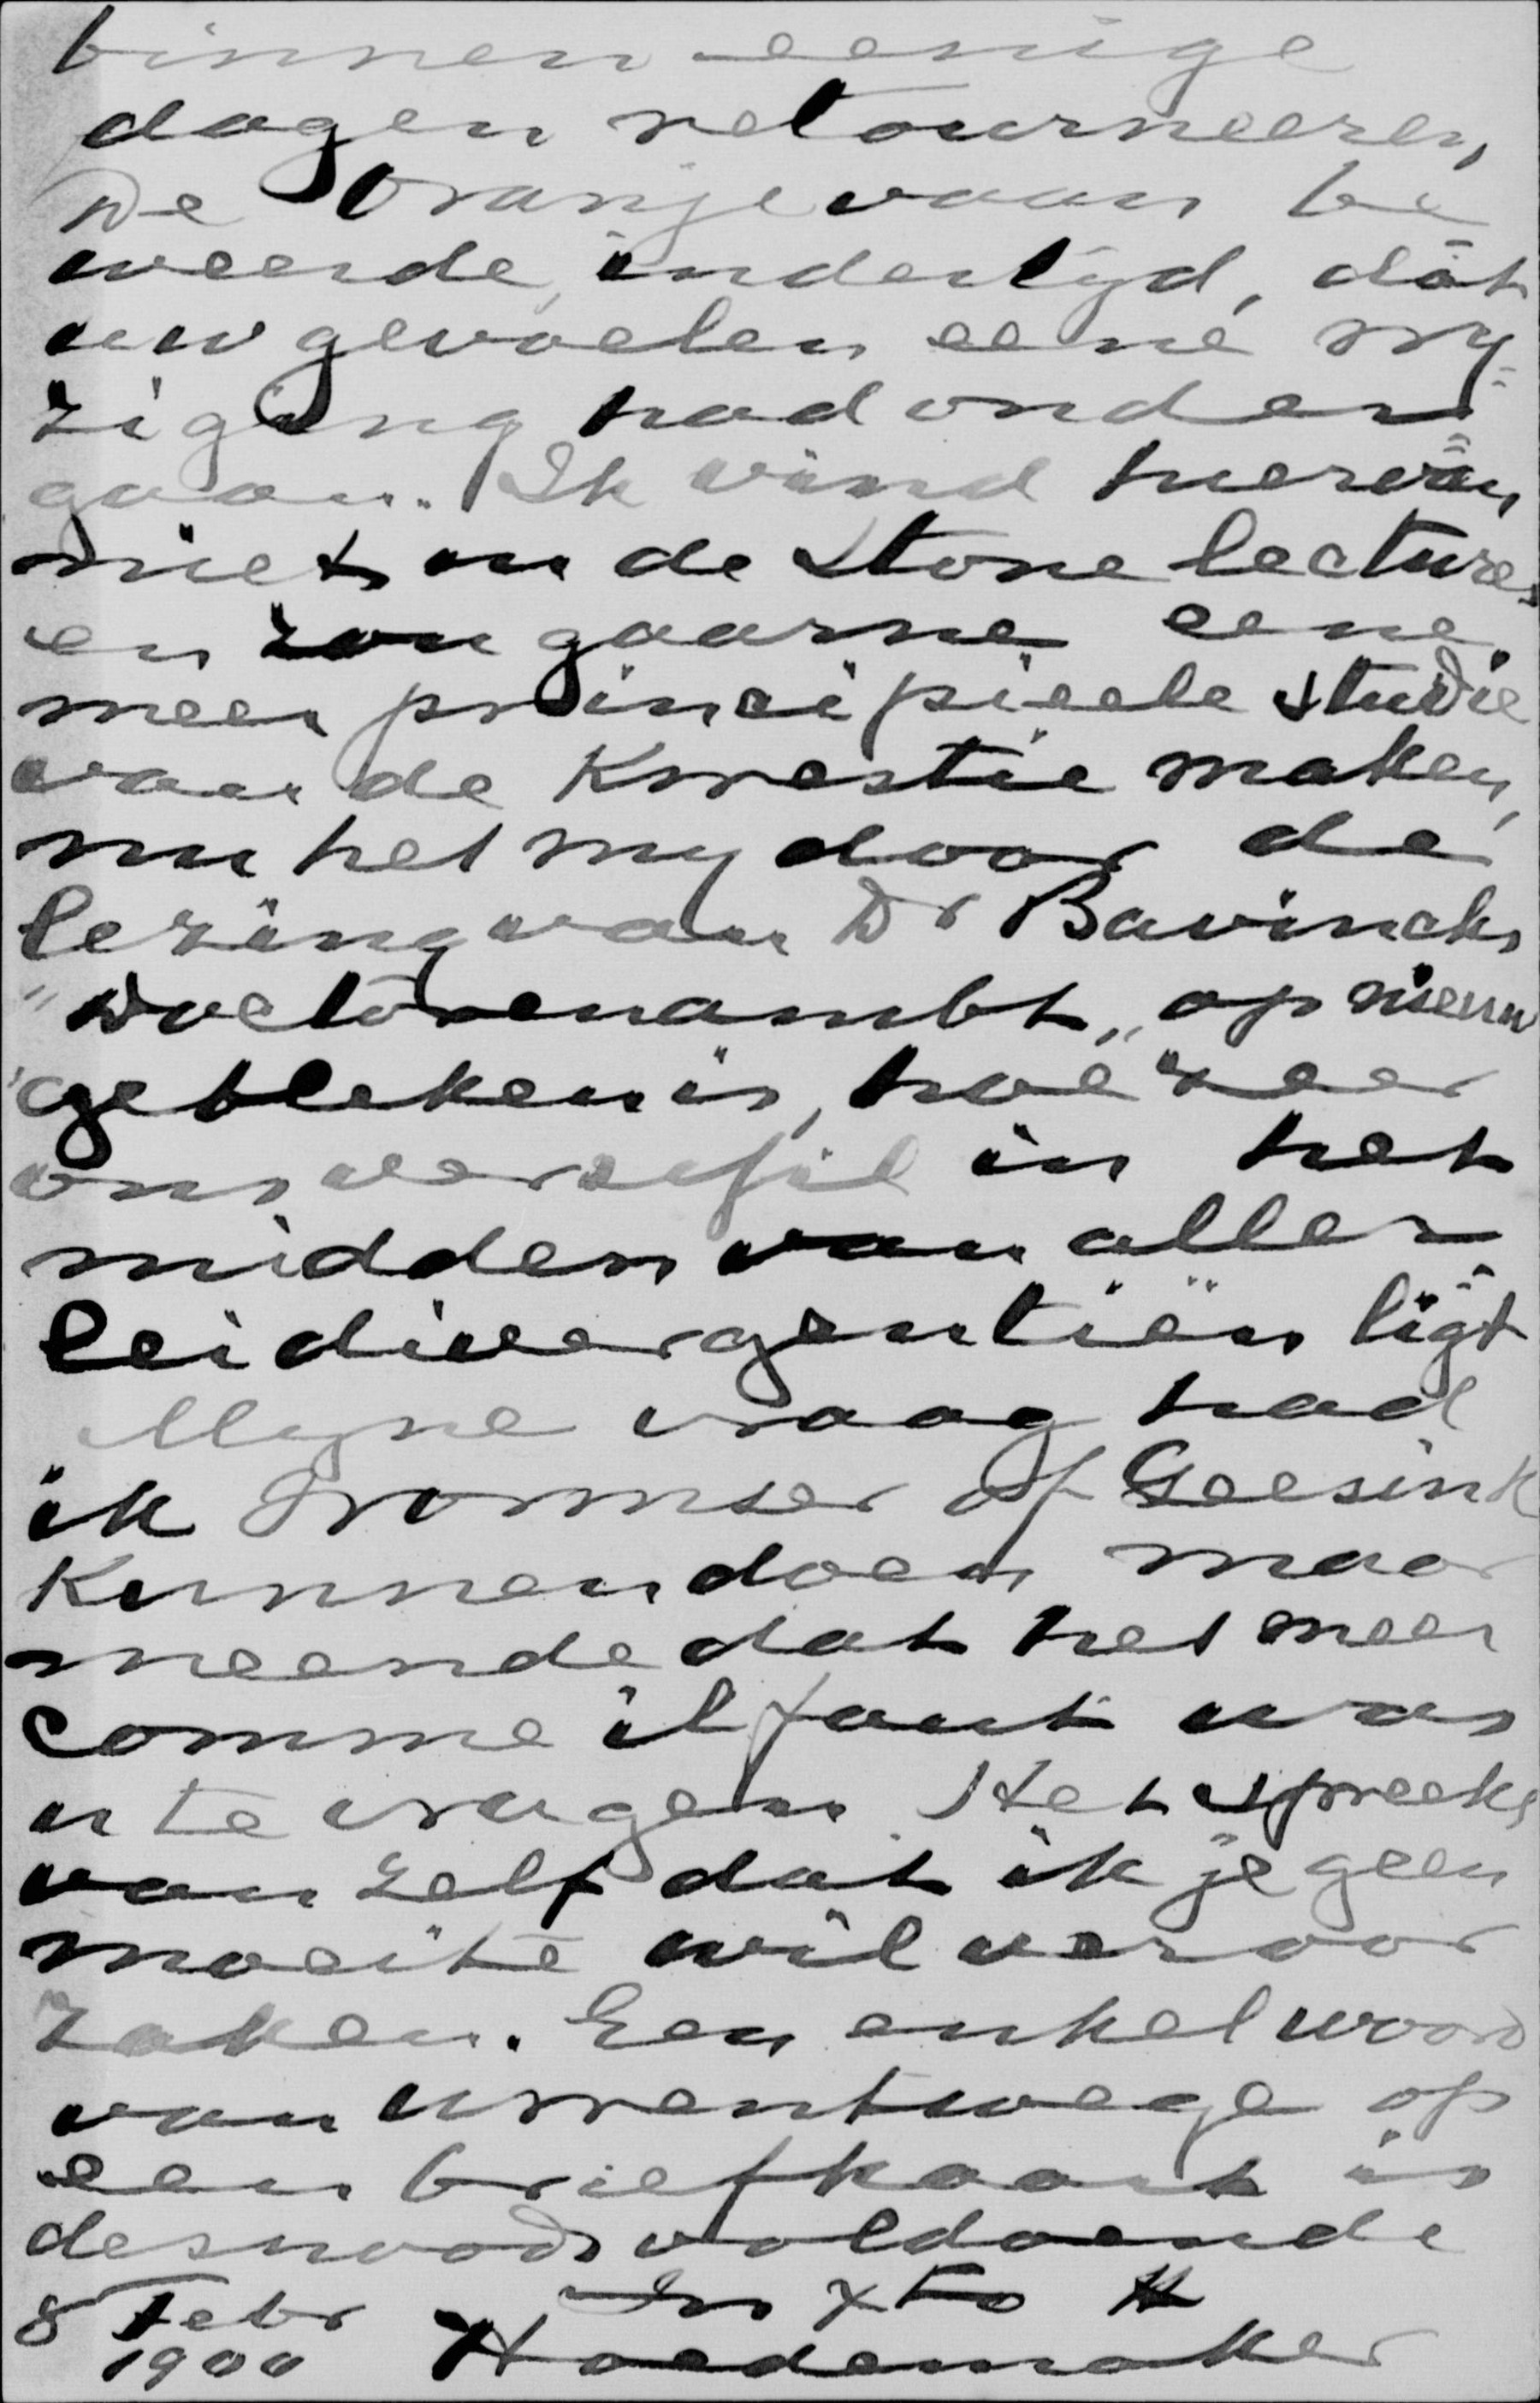 binnen eenige
dagen retourneeren,
De Oranjevaan be
weerde, indertijd, dat
uw gevoelen eene wy
ziging had onder=
gaan. Ik vind hiervan
niets in de Stone lectures
en zou gaarne eene
meer principieele studie
van de Kwestie maken,
nu het my door de
lezing van Dr Bavincks
"Doctorenambt" op nieuw
gebleken is, hoe zeer
ons verschil in het
midden van aller
lei divergentiën ligt
Myne vraag had
ik Wormser of Geesink
Kunnen doen maar
meende dat het meer
comme il faut was
u te vragen. Het spreekt
van zelf dat ik je geen
moeite wil veroor
zaken. Een enkel woord
van uwentwege op
een briefkaart is
desnoods voldoende
In Xto tt
8 Febr
1900 Hoedemaker